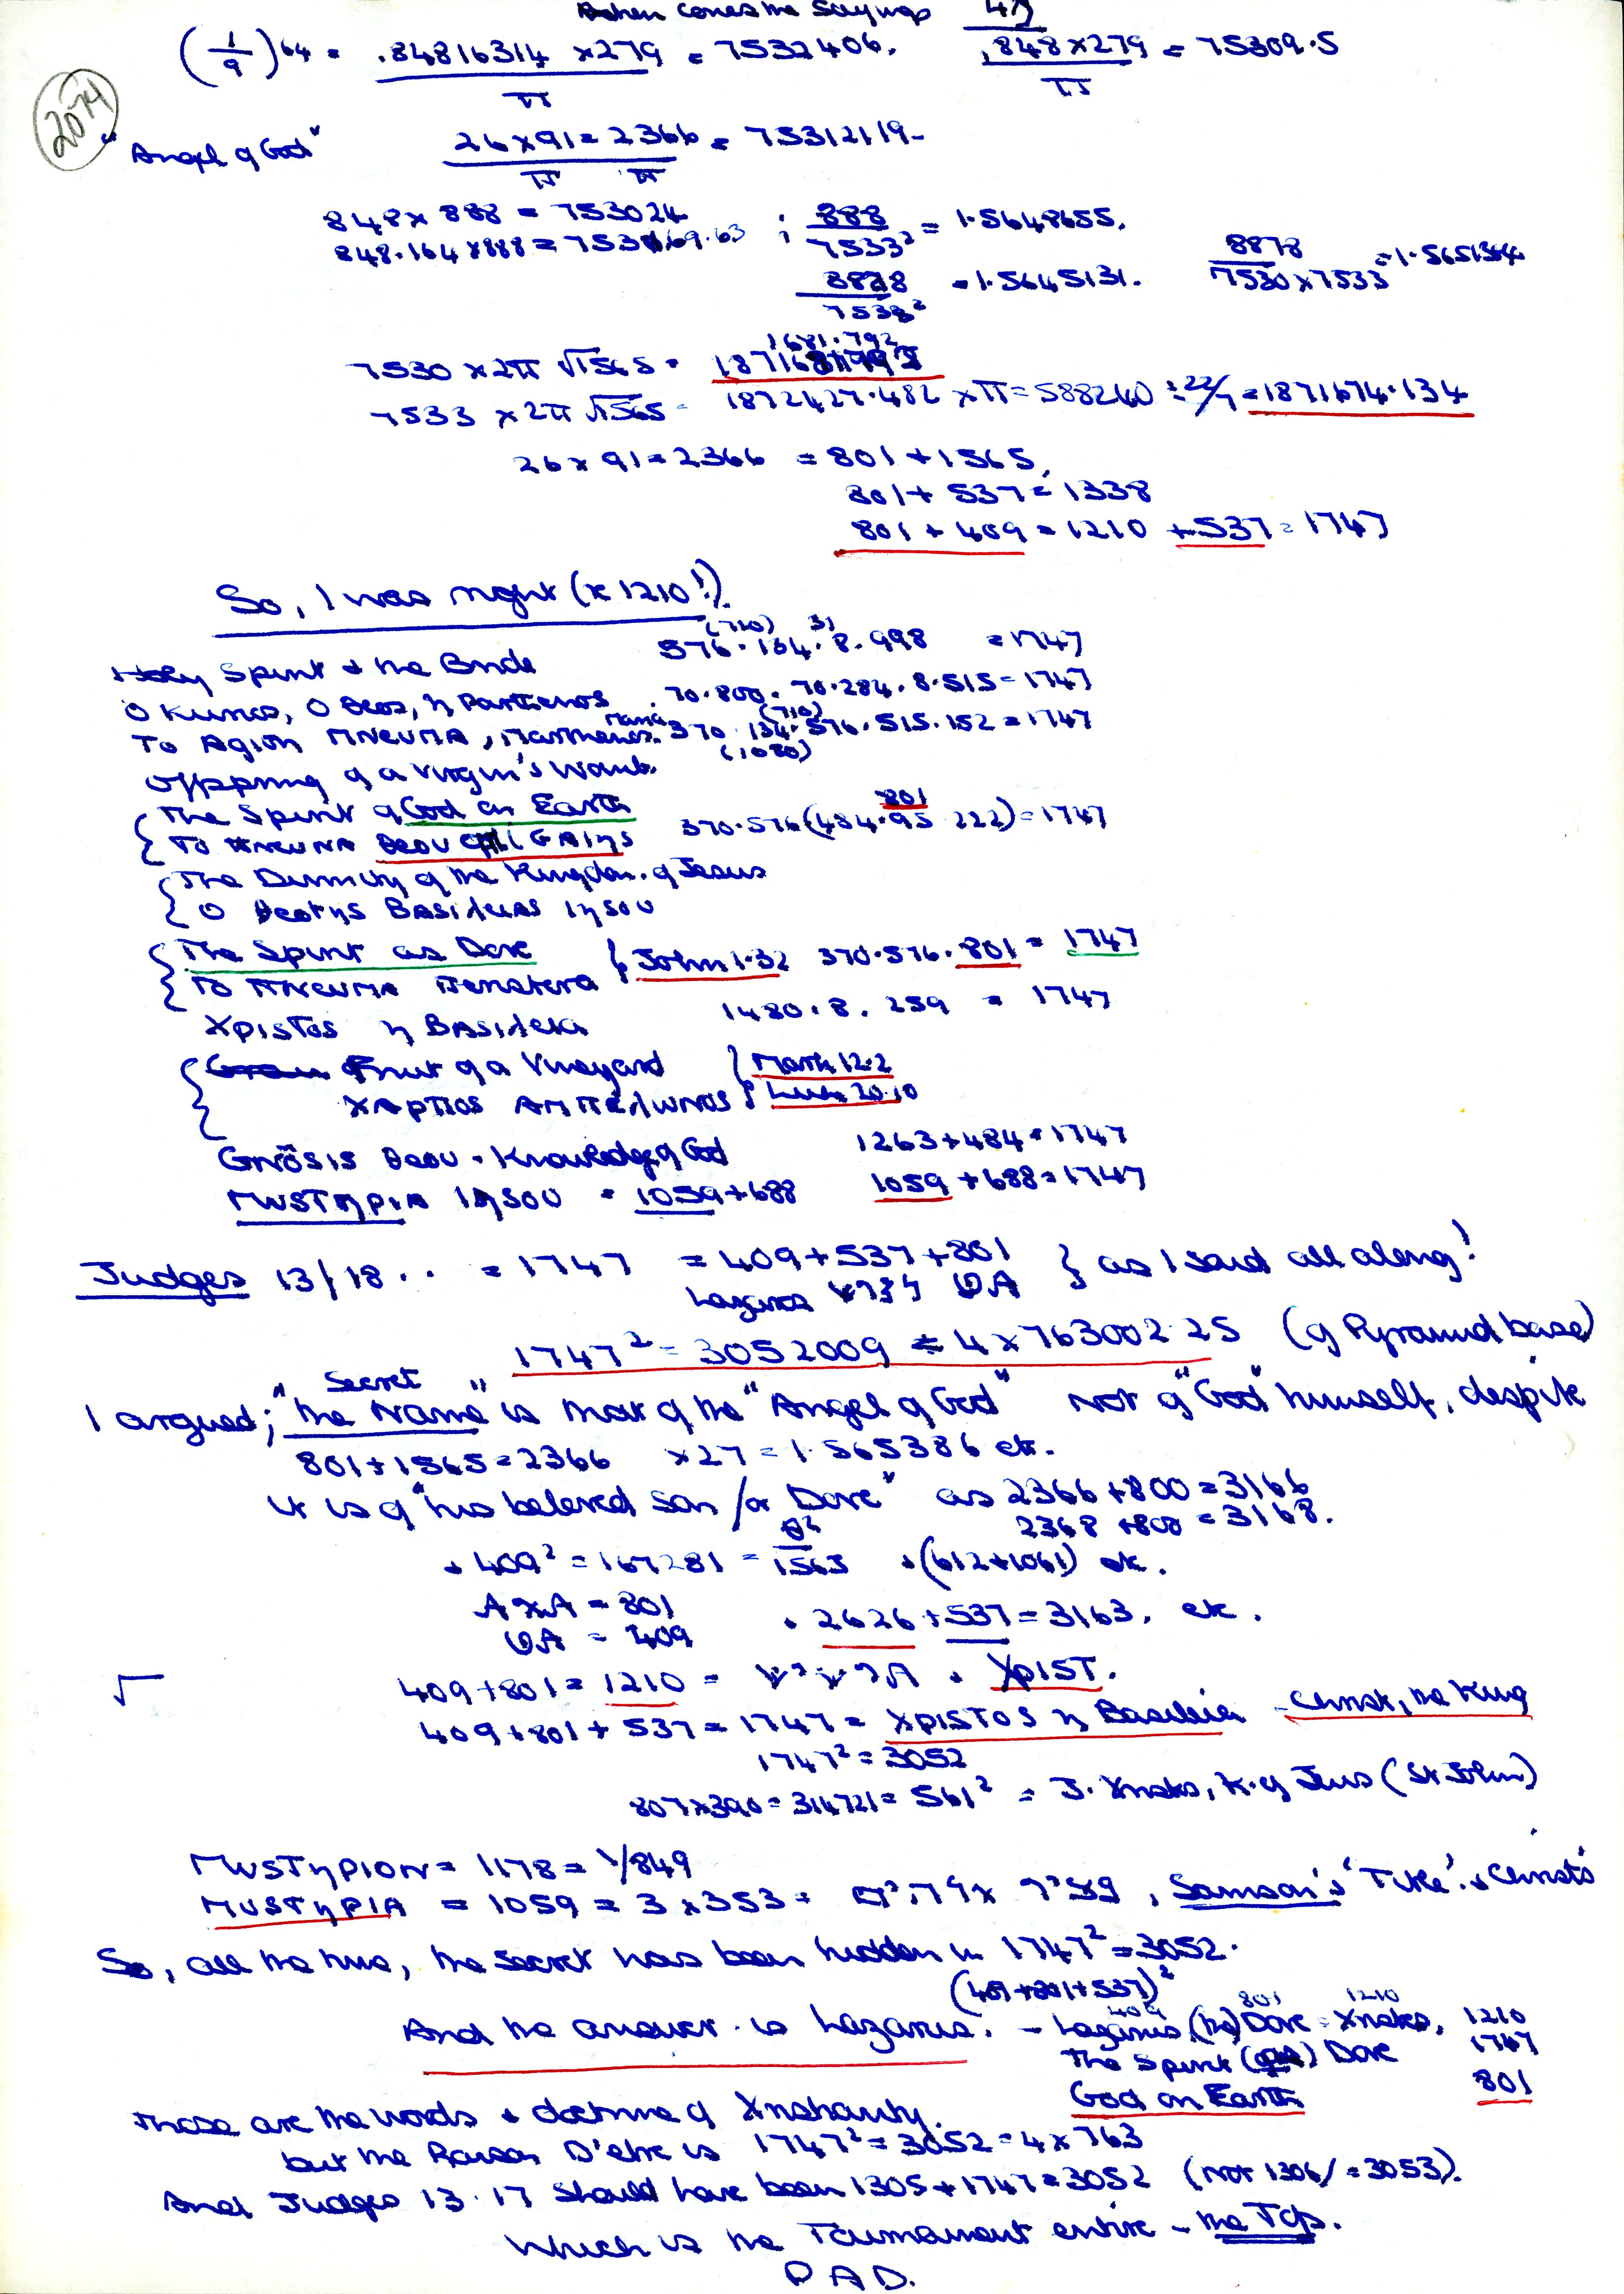 comes the Sayings 47
(1/9)^64 = .84816314 × 279 / π = 7532406. .848×279 / π = 75309.5
2074
"Angel of God" 26×91 = 2366 / π π = 75312119-
848 × 888 = 753024 ; 888 / 7533² = 1.5648655.
848.164 × 888 = 69.63
8878 / 7530×7533 = 1.565134
= 1.5645131.
1681.792
7530 × 2π √1565 =
7533 × 2π √1565 = 1872427.482 × π = 588240 ÷ 22/7 = 1871674.134
26 × 91 = 2366 = 801 + 1565,
801 + 537 = 1338
801 + 409 = 1210 + 537 = 1747
So, I was right (× 1210!).
(710) 31
Spirit + the Bride 576.134.8.998 = 1747
O Kurios, O θeos, η Parthenos. 70.800.70.284.8.515 = 1747
(710)
To Agion Πneuma, Parthenos. Maria 370.134.576.515.152 = 1747
(1080)
Offspring of a Virgin's Womb.
The Spirit of God on Earth 801
To Πneuma θeou Gαiηs 370.576 (484.95 222) = 1747
The Divinity of the Kingdom of Jesus
O θeotηs Basileias Iηsou
The Spirit as Dove
To Πneuma Πeristera } John 1.32 370.576.801 = 1747
Xpistos η Basileia 1480.8.259 = 1747
Fruit of a Vineyard } Mark 12.2
Kαρπos Aμπελωνos } Luke 20.10
Gnōsis θeou = Knowledge of God 1263+484 = 1747
MUSTηPIA Iηsou = 1059+688 1059 + 688 = 1747
Judges 13/18.. = 1747 = 409+537+801 } as I said all along!
Lazarus
1747² = 3052009 = 4 × 763002.25 (of Pyramid base)
Secret
I argued; "the Name" is that of the "Angel of God" not of "God" himself, despite
801+1565 = 2366 × 27 = 1.565386 etc.
It is of "his beloved Son/or Dove" as 2366+800 = 3166
2368 +800 = 3168.
+ 409² = 167281 = 1565 + (612+1061) etc.
AXA = 801
= 409 + 2626 + 537 = 3163, etc.
409+801 = 1210 = + XPIST.
409+801+537 = 1747 = XPISTOS η Basileia - Christ, the King
1747² = 3052
807×390 = 314721 = 561² = J. Xristos, K. of Jews (St John)
MUSTηPION = 1178 = 1/849
MUSTηPIA = 1059 = 3 × 353 = , Samson's 'Title'. + Christ's
So, all the time, the secret has been hidden in 1747² = 3052.
(409+801+537)²
409 801 1210
And the answer is Lazarus. - Lazarus, (the) Dove = Xristos, 1210
The Spirit Dove 1747
God on Earth 801
Those are the words + doctrine of Xristianity.
but the Raison D'etre is 1747² = 3052 = 4 × 763
And Judges 13.17 should have been 1305+1747 = 3052 (Not 1306/ = 3053).
Which is the Tournament entire - the Tops.
P A D.